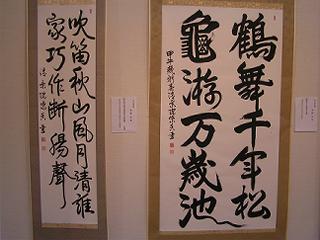 鶴舞千年松
龜游万歳池
甲午
吹笛秋山風月清誰
家巧作断腸聲